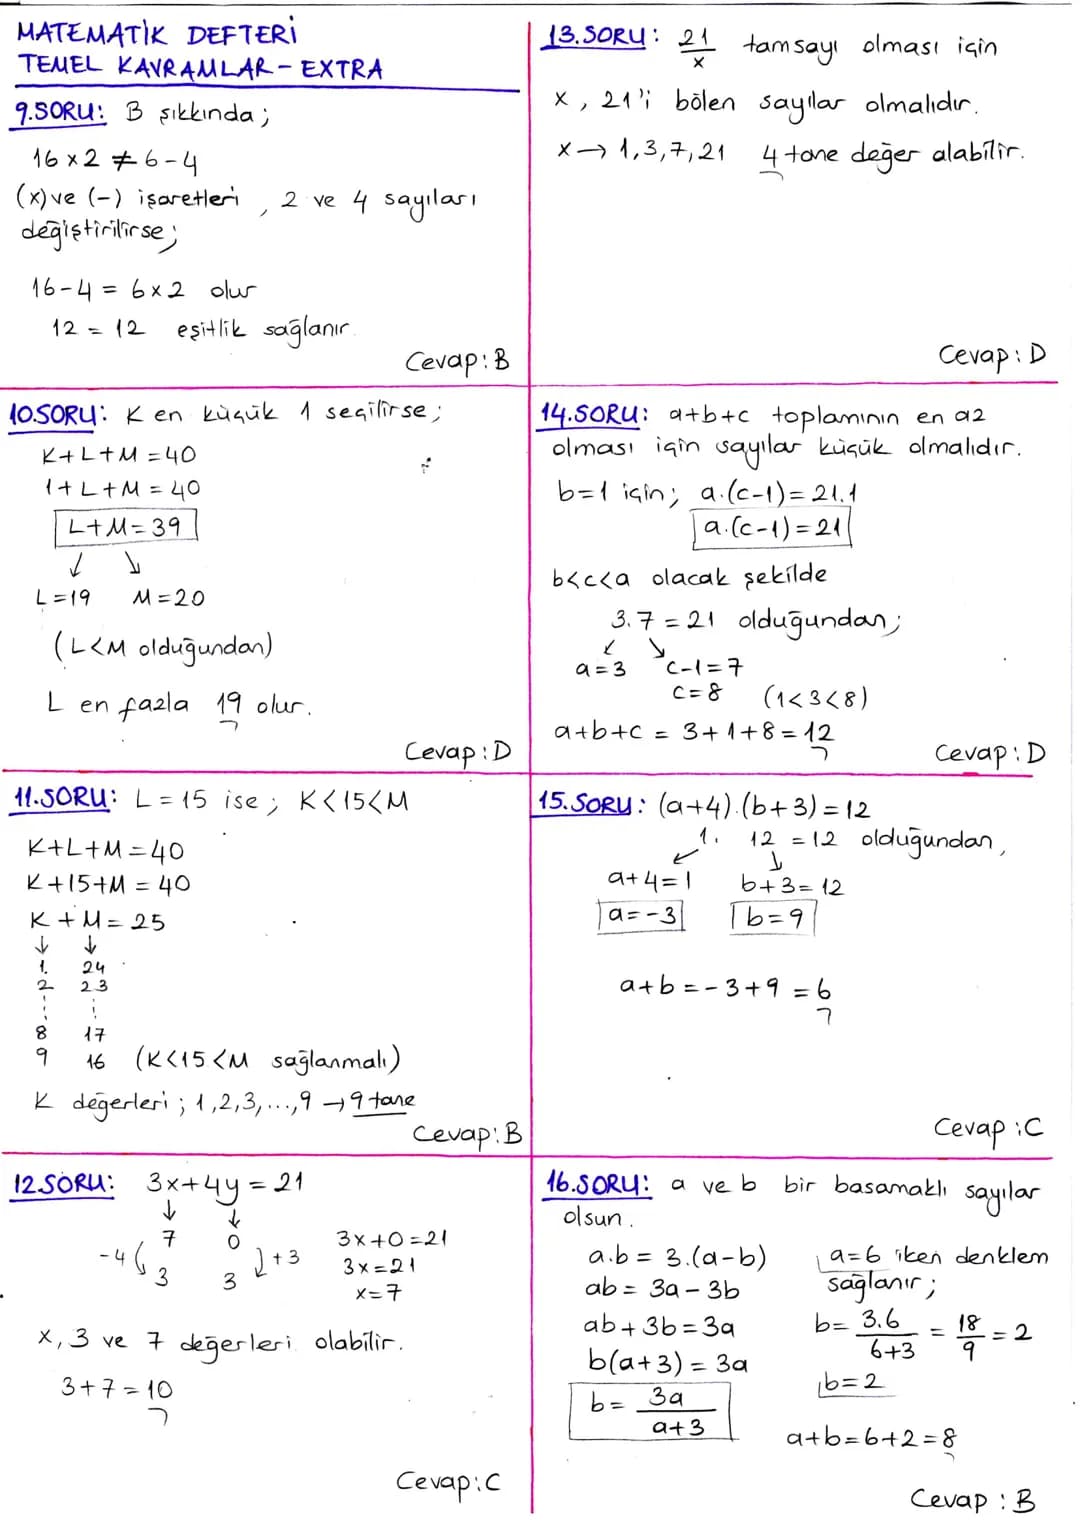 MATEMATİK DEFTERİ
TEMEL KAVRAMLAR - EXTRA
9.SORU: B şıkkında;
16 x 2 ≠ 6 - 4
(x) ve (-) işaretleri, 2 ve 4 sayıları
değiştirilirse;
16 - 4 = 6 x 2 olur
12 = 12 eşitlik sağlanır.
Cevap: B
10.SORU: K en küçük 1 seçilirse;
K+L+M = 40
1+L+M = 40
L+M = 39
↓ ↓
L=19 M=20
(L<M olduğundan)
L en fazla 19 olur.
Cevap: D
11.SORU: L = 15 ise; K<15<M
K+L+M = 40
K+15+M = 40
K + M = 25
↓ ↓
1. 24
2 23
⋮ ⋮
8 17
9 16 (K<15<M sağlanmalı)
K değerleri; 1,2,3,...,9 → 9 tane
Cevap: B
12.SORU: 3x+4y = 21
↓ ↓
7 0 3x+0=21
-4 +3 3x=21
3 3 x=7
x, 3 ve 7 değerleri olabilir.
3+7=10
Cevap: C
13.SORU: 21/x tamsayı olması için
x, 21'i bölen sayılar olmalıdır.
x → 1,3,7,21 4 tane değer alabilir.
Cevap: D
14.SORU: a+b+c toplamının en az
olması için sayılar küçük olmalıdır.
b=1 için; a.(c-1) = 21.1
a.(c-1) = 21
b<c<a olacak şekilde
3.7 = 21 olduğundan;
↓ ↓
a=3 c-1=7
c=8 (1<3<8)
a+b+c = 3+1+8 = 12
Cevap: D
15.SORU: (a+4).(b+3) = 12
1. 12 = 12 olduğundan,
↓ ↓
a+4=1 b+3=12
a=-3 b=9
a+b = -3+9 = 6
Cevap: C
16.SORU: a ve b bir basamaklı sayılar
olsun.
a.b = 3.(a-b)
ab = 3a - 3b
ab+3b = 3a
b(a+3) = 3a
b = 3a/(a+3)
a=6 iken denklem
sağlanır;
b = 3.6/(6+3) = 18/9 = 2
b=2
a+b=6+2=8
Cevap: B